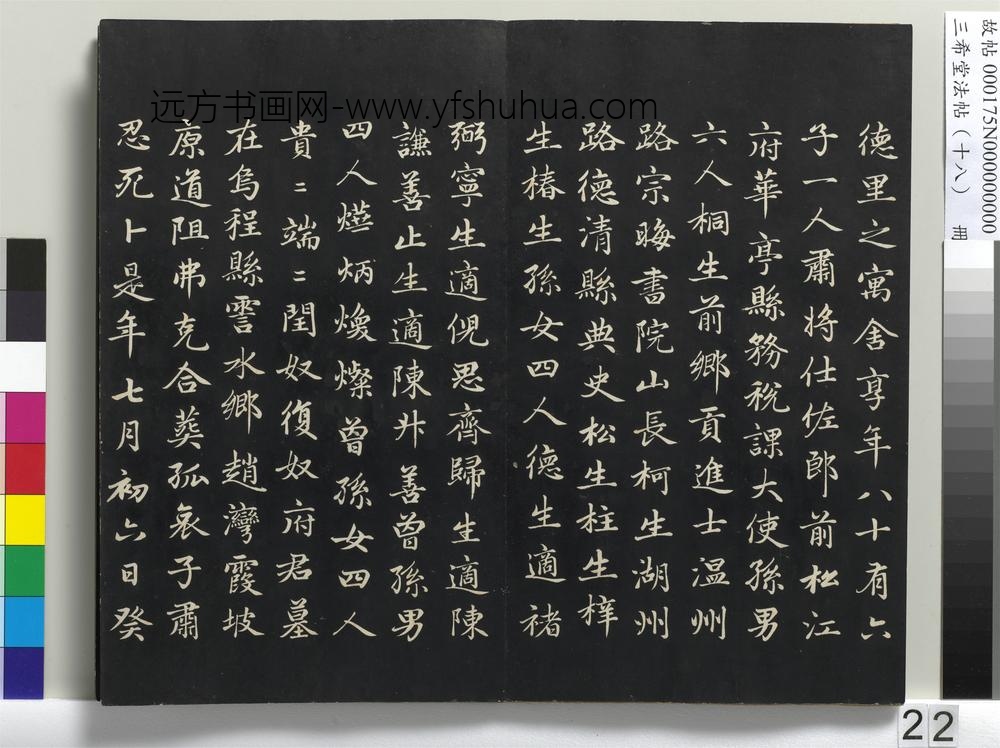 德里之寓舍享年八十有六
子一人肅将仕佐郎前松江
府華亭縣務税課大使孫男
六人桐生前鄉貢進士温州
路宗晦書院山長柯生湖州
路德清縣典史松生柱生梓
生椿生孫女四人德生適褚
弼寧生適倪思齊歸生適陳
謙善止生適陳升善曾孫男
四人㷼炳煥燦曾孫女四人
貴〻端〻閏奴復奴府君墓
在烏程縣霅水鄉趙灣霞坡
原道阻弗克合葬孤哀子肅
忍死卜是年七月初六日癸
远方书画网-www.yfshuhua.com
故帖 000175N000000000
三希堂法帖（十八） 冊
22